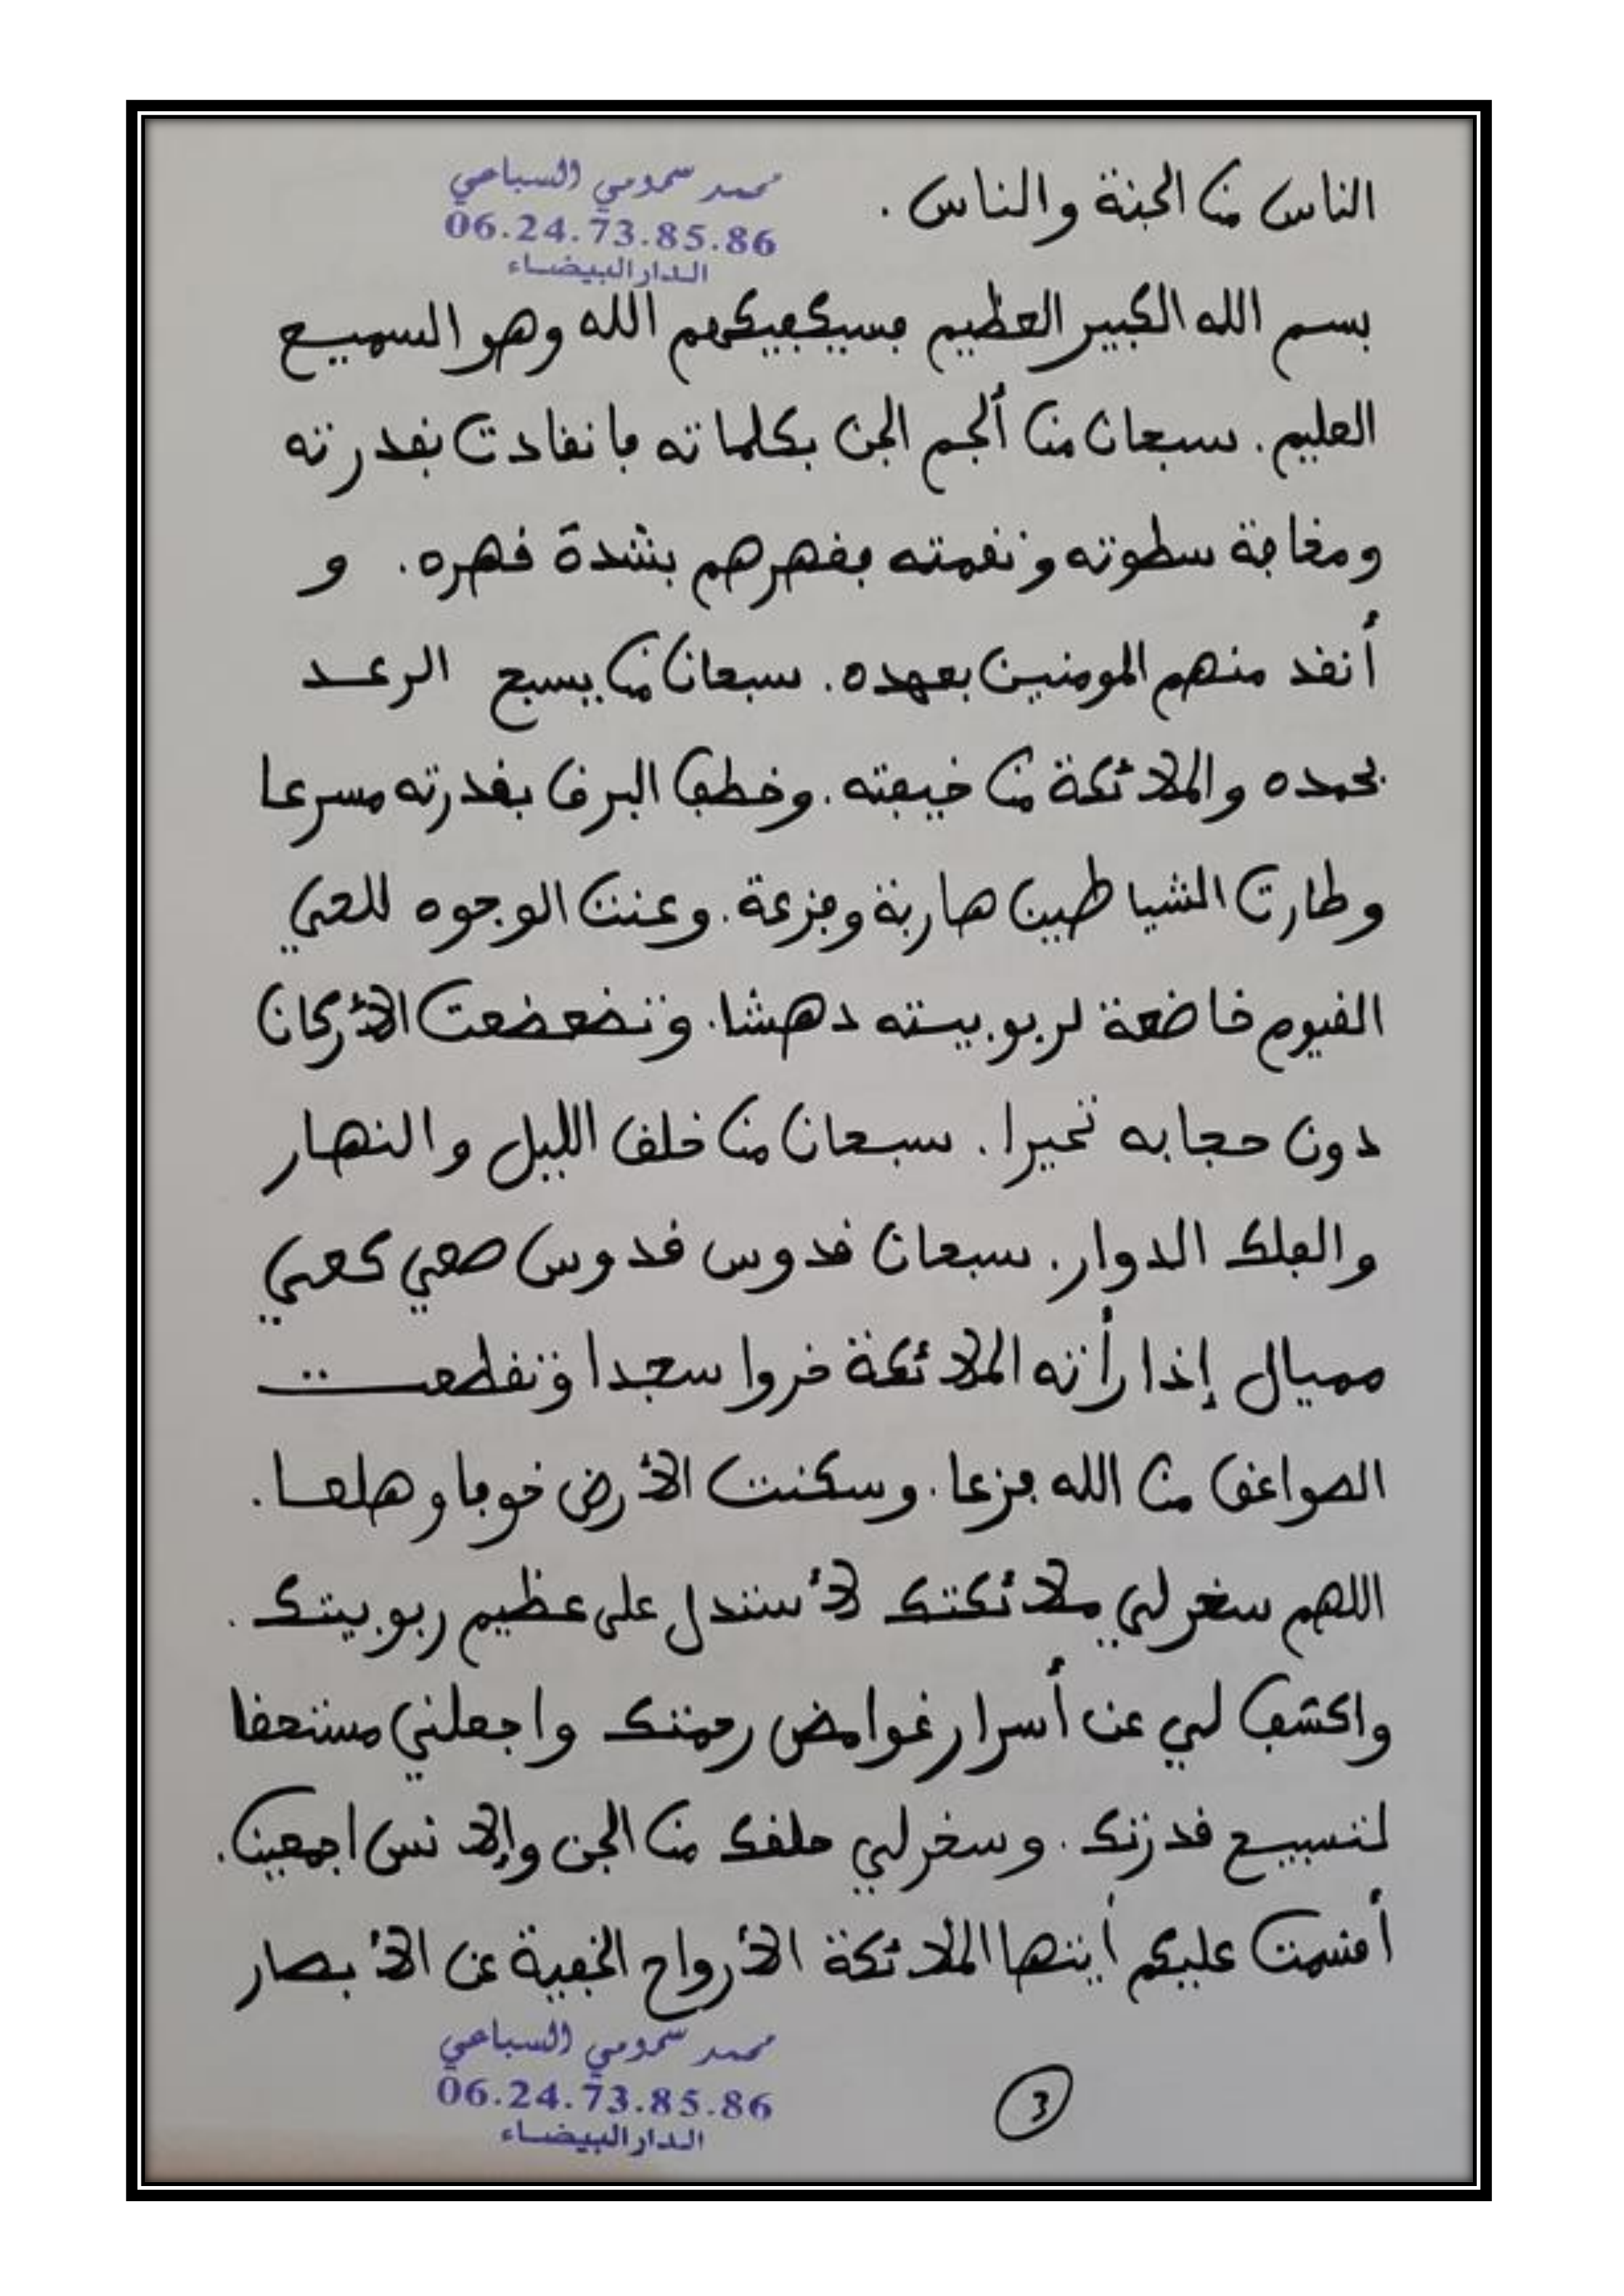 الناس من الجنة والناس .
محمد سمومي السباعي
06.24.73.85.86
الدار البيضاء
بسم الله الكبير العظيم فسيكفيكهم الله وهو السميع
العليم . سبحان من ألجم الجن بكلماته فانقادت بقدرته
ومخافة سطوته ونقمته فقهرهم بشدة قهره . و
أنفد منهم المومنين بعهده . سبحان من يسبح الرعد
بحمده والملائكة من خيفته . وخطف البرق بقدرته مسرعا
وطارت الشياطين هاربة وفزعة . وعنت الوجوه للحي
القيوم خاضعة لربوبيته دهشا . وتضعضعت الأركان
دون حجابه تحيرا . سبحان من خلق الليل والنهار
والفلك الدوار . سبحان قدوس قدوس صعي كعي
مميال إذا رأته الملائكة خروا سجدا وتقطعت
الصواعق من الله فزعا . وسكنت الأرض خوفا وهلعا .
اللهم سخر لي ملائكتك لأستدل على عظيم ربوبيتك .
واكشف لي عن أسرار غوامض رحمتك واجعلني مستحقا
لتسبيح قدرتك . وسخر لي خلقك من الجن والإنس اجمعين .
أقسمت عليكم أيتها الملائكة الأرواح الخفية عن الأبصار
محمد سمومي السباعي
06.24.73.85.86
الدار البيضاء
3